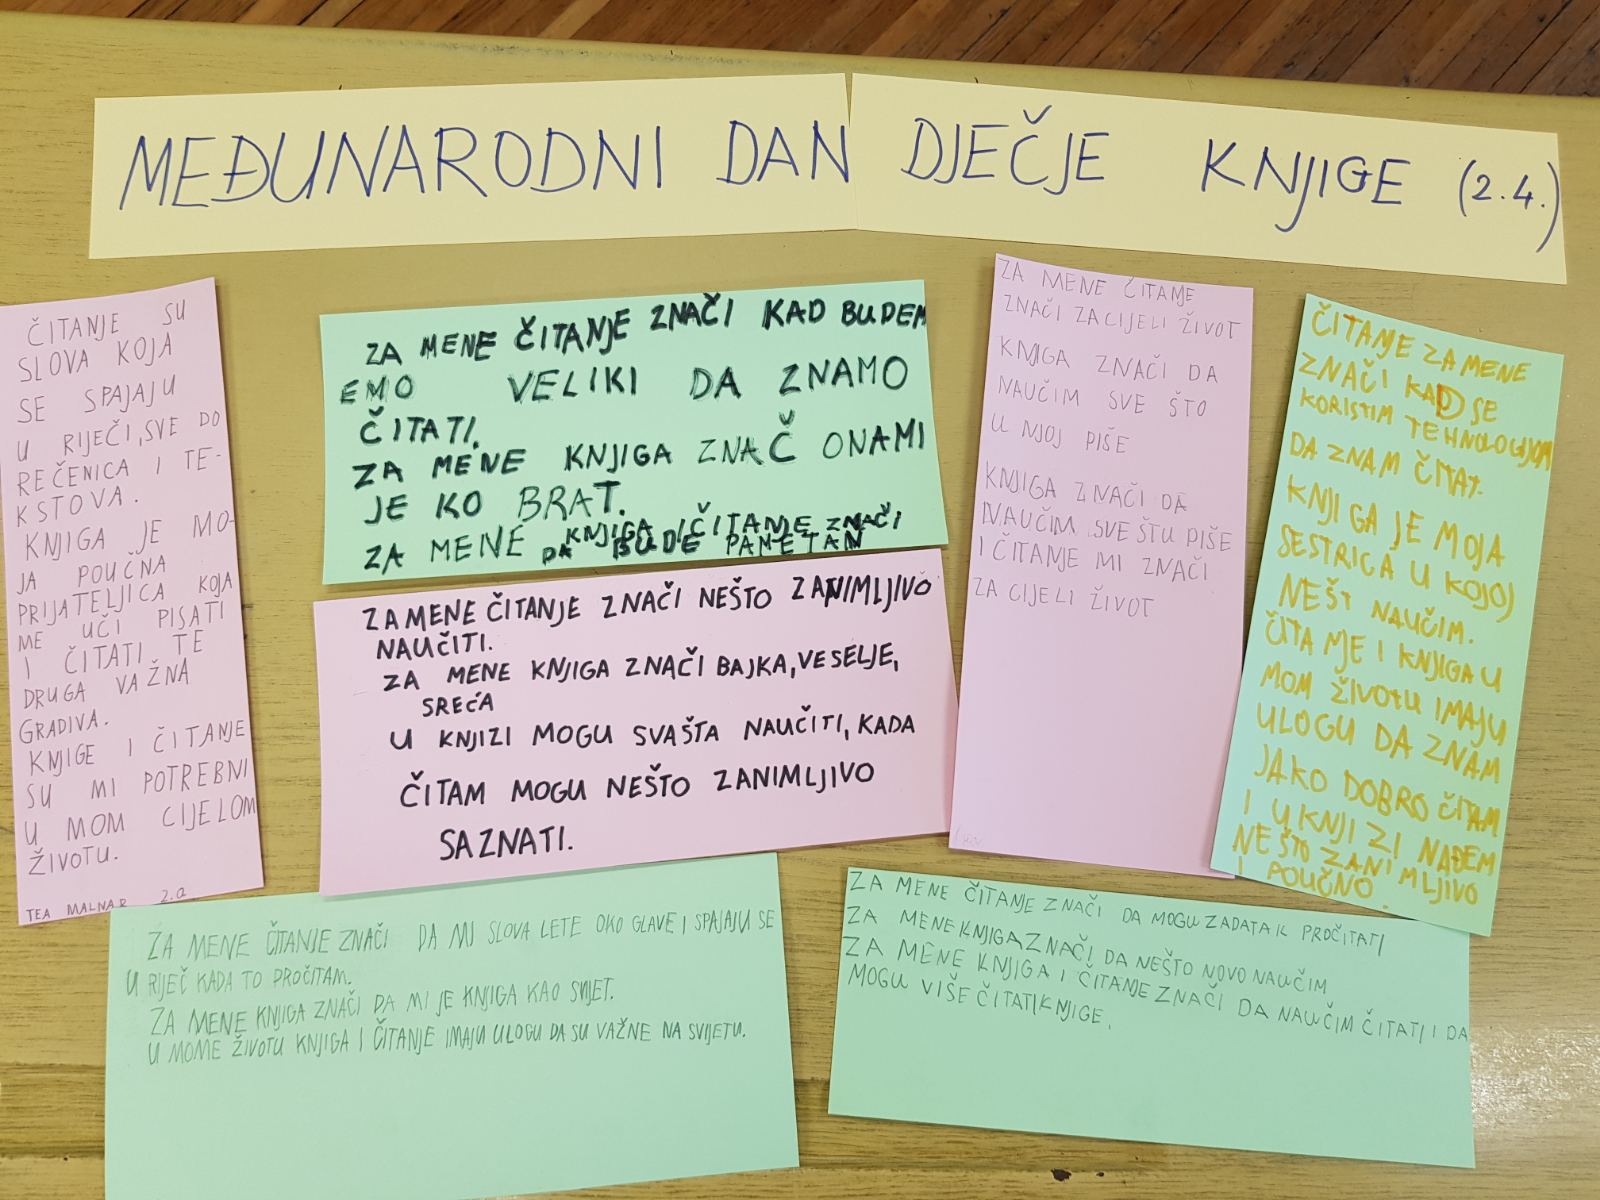 MEĐUNARODNI DAN DJEČJE KNJIGE (2.4.)
ČITANJE SU
SLOVA KOJA
SE SPAJAJU
U RIJEČI, SVE DO
REČENICA I TE-
KSTOVA.
KNJIGA JE MO-
JA POUČNA
PRIJATELJICA KOJA
ME UČI PISATI
I ČITATI TE
DRUGA VAŽNA
GRADIVA.
KNJIGE I ČITANJE
SU MI POTREBNI
U MOM CIJELOM
ŽIVOTU.
TEA MALNAR 2.a
ZA MENE ČITANJE ZNAČI KAD BUDEM
EMO VELIKI DA ZNAMO
ČITATI.
ZA MENE KNJIGA ZNAČ ONAMI
JE KO BRAT.
ZA MENE KNJIGA I ČITANJE ZNAČI
DA BUDE PAMETAN
ZA MENE ČITANJE ZNAČI NEŠTO ZANIMLJIVO
NAUČITI.
ZA MENE KNJIGA ZNAČI BAJKA, VESELJE,
SREĆA
U KNJIZI MOGU SVAŠTA NAUČITI, KADA
ČITAM MOGU NEŠTO ZANIMLJIVO
SAZNATI.
ZA MENE ČITANJE
ZNAČI ZA CIJELI ŽIVOT
KNJIGA ZNAČI DA
NAUČIM SVE ŠTO
U NJOJ PIŠE
KNJIGA ZNAČI DA
NAUČIM SVE ŠTU PIŠE
I ČITANJE MI ZNAČI
ZA CIJELI ŽIVOT
ČITANJE ZA MENE
ZNAČI KAD SE
KORISTIM TEHNOLOGIJOM
DA ZNAM ČITAT.
KNJIGA JE MOJA
SESTRICA U KOJOJ
NEŠT NAUČIM.
ČITANJE I KNJIGA U
MOM ŽIVOTU IMAJU
ULOGU DA ZNAM
JAKO DOBRO ČITAM
I U KNJIZI NAĐEM
NEŠTO ZANIMLJIVO
I POUČNO.
ZA MENE ČITANJE ZNAČI DA MI SLOVA LETE OKO GLAVE I SPAJAJU SE
U RIJEČ KADA TO PROČITAM.
ZA MENE KNJIGA ZNAČI DA MI JE KNJIGA KAO SVIJET.
U MOME ŽIVOTU KNJIGA I ČITANJE IMAJU ULOGU DA SU VAŽNE NA SVIJETU.
ZA MENE ČITANJE ZNAČI DA MOGU ZADATAK PROČITATI
ZA MENE KNJIGA ZNAČI DA NEŠTO NOVO NAUČIM
ZA MENE KNJIGA I ČITANJE ZNAČI DA NAUČIM ČITATI I DA
MOGU VIŠE ČITATI KNJIGE.